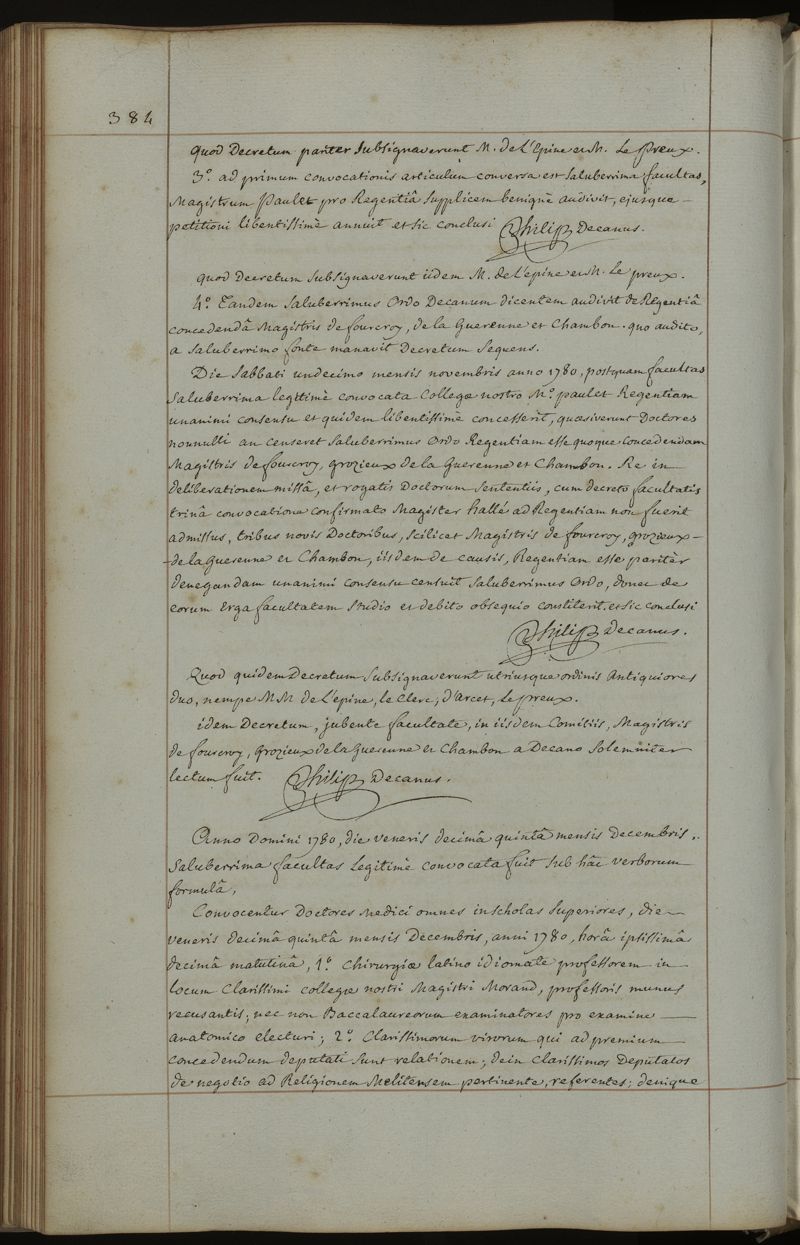 384
Quod Decretum pariter Subsignaverunt M. de L'Epine et M. Le Preux.
3.º ad primum convocationis articulum conversa est Saluberrima facultas,
Magistrum Paulet pro Regentiâ Supplicem benignè audivit, ejusque
petitioni libentissimè annuit et sic conclusi Philip Decanus.
Quod Decretum Subsignaverunt iidem M. de L'epine et M. Le preux.
4.º Tandem Saluberrimus Ordo Decanum dicentem audivit de Regentiâ
concedendâ Magistris de fourcroy, de la Guerenne et Chambon. quo audito,
a Saluberrimo fonte manavit Decretum Sequens.
Die Sabbati undecimo mensis novembris anno 1780, postquam facultas
Saluberrima legitimè convocata Collegæ nostro M.º paulet Regentiam
unanimi consensu et quidem libentissimè concesserit, quæsiverunt Doctores
nonnulli an censeret Saluberrimus Ordo Regentiam esse quoque concedendam
Magistris de fourcroy, grozieux de la Guerenne et Chambon. Re in
deliberationem missâ, et rogatis Doctorum Sententiis, cum decreto facultatis
trinâ convocatione confirmato Magister hallé ad Regentiam non fuerit
admissus, tribus novis Doctoribus, Scilicet Magistris de fourcroy, grozieux
de la Guesenne et Chambon, iisdem de causis, Regentiam esse paritèr
denegandam unanimi consensu censuit Saluberrimus Ordo, donec de
eorum Erga facultatem Studio et debito obsequio constiterit. et sic conclusi
Philip Decanus.
Quod quidem Decretum Subsignaverunt utriusque ordinis Antiquiores
duo, nempe M M. de L'epine, le Clerc, d'arcet, Le preux.
idem Decretum, jubente facultate, in iisdem Comitiis, Magistris
de fourcroy, grozieux de la Guesenne et Chambon a Decano Solemniter
lectum fuit. Philip Decanus.
Anno Domini 1780, die veneris decimâ quintâ mensis Decembris,
Saluberrima facultas Legitimè convocata fuit sub hâc verborum
formulâ,
Convocentur Doctores Medici omnes in scholas Superiores, die
veneris decimâ quintâ mensis Decembris, anni 1780, horâ ipsissimâ
decimâ matutinâ, 1.º Chirurgiæ latino idiomate professorem in
locum Clarissimi collegæ nostri Magistri Morand, professoris munus
recusantis, nec non Baccalaureorum examinatores pro examine
anatomico electuri; 2.º Clarissimorum virorum qui ad premium
concedendum deputati sunt relationem; dein Clarissimos Deputatos
de negotio ad Religionem Melitensem pertinente, referentes; denique